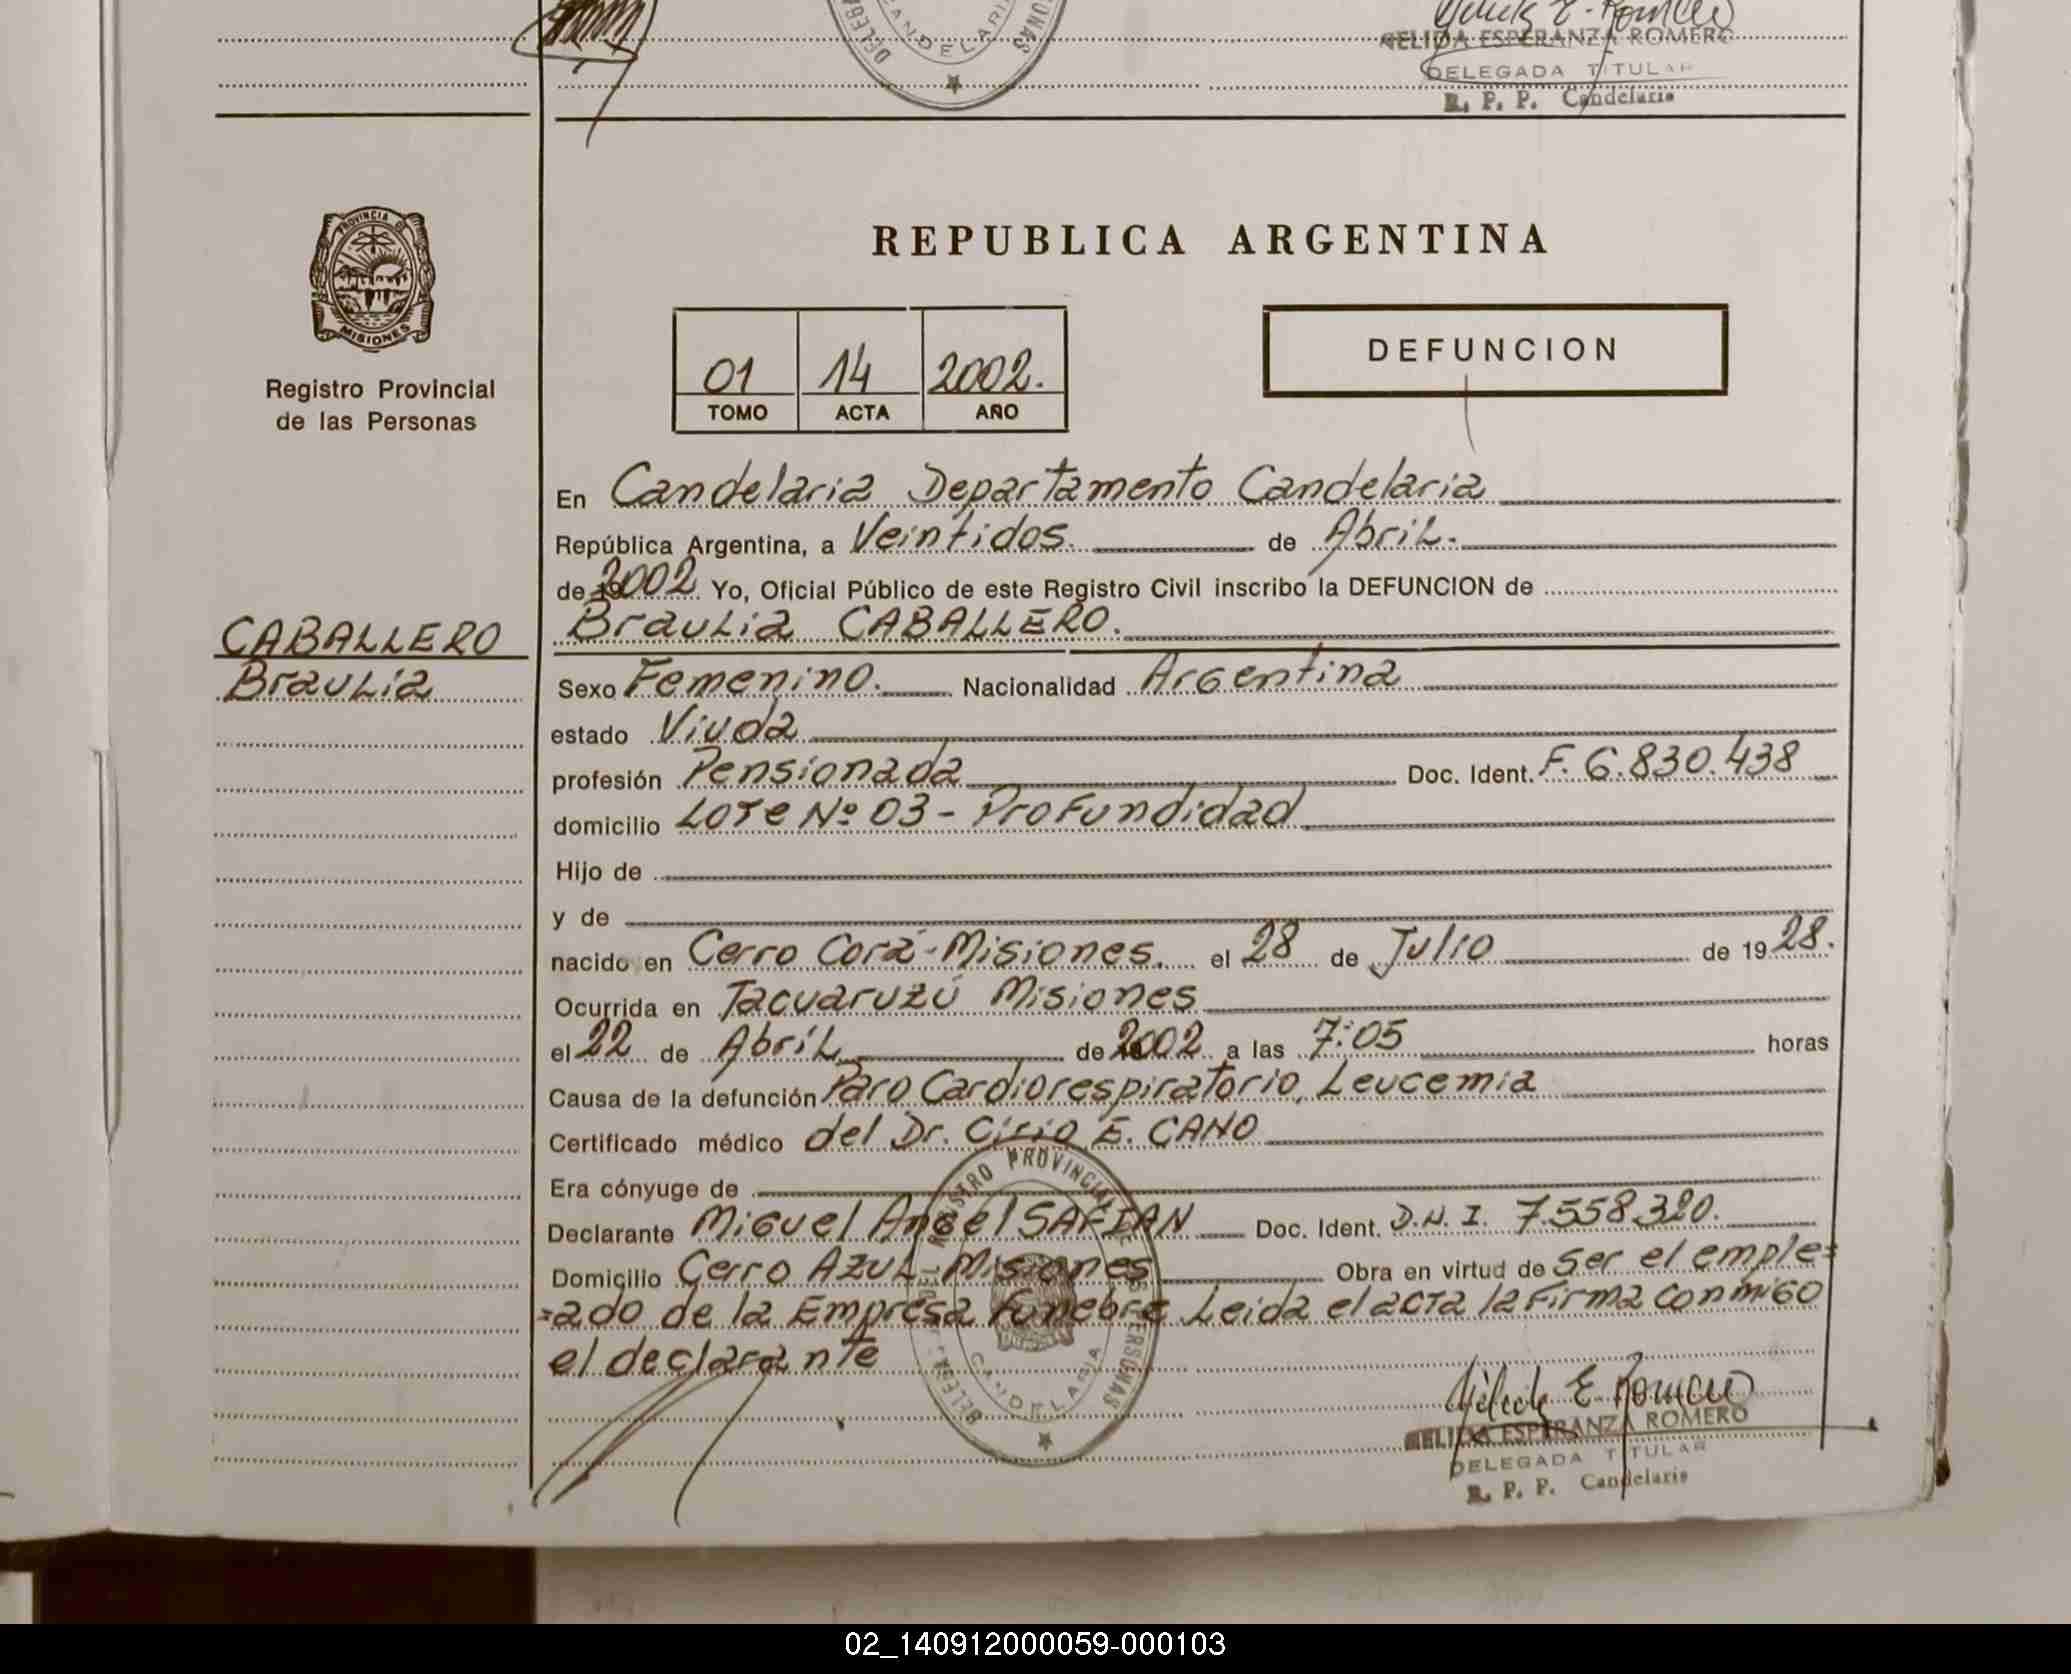 DELEGA CANDELARIA ONAS
Nélida E. Romero
NELIDA ESPERANZA ROMERO
DELEGADA TITULAR
R. P. P. Candelaria
PROVINCIA DE
MISIONES
Registro Provincial
de las Personas
REPUBLICA ARGENTINA
01 14 2002.
TOMO ACTA AÑO
DEFUNCION
En Candelaria Departamento Candelaria
República Argentina, a Veintidos. de Abril.
de 2002 Yo, Oficial Público de este Registro Civil inscribo la DEFUNCION de
Braulia CABALLERO.
CABALLERO
Braulia
Sexo Femenino. Nacionalidad Argentina
estado Viuda
profesión Pensionada Doc. Ident. F. 6.830.438
domicilio Lote Nº 03 - Profundidad
Hijo de
y de
nacido en Cerro Corá - Misiones. el 28 de Julio de 1928.
Ocurrida en Tacuaruzú Misiones
el 22 de Abril de 2002 a las 7:05 horas
Causa de la defunción Paro Cardiorespiratorio, Leucemia
Certificado médico del Dr. Cirio E. CANO
Era cónyuge de
Declarante Miguel Angel SAFIAN Doc. Ident. D.N.I. 7.558.320.
Domicilio Cerro Azul Misiones Obra en virtud de ser el emple=
=ado de la Empresa Funebre Leida el acta la firma conmigo
el declarante
REGISTRO PROVINCIAL DE LAS PERSONAS
CANDELARIA
Nélida E Romero
NELIDA ESPERANZA ROMERO
DELEGADA TITULAR
R. P. P. Candelaria
02_140912000059-000103